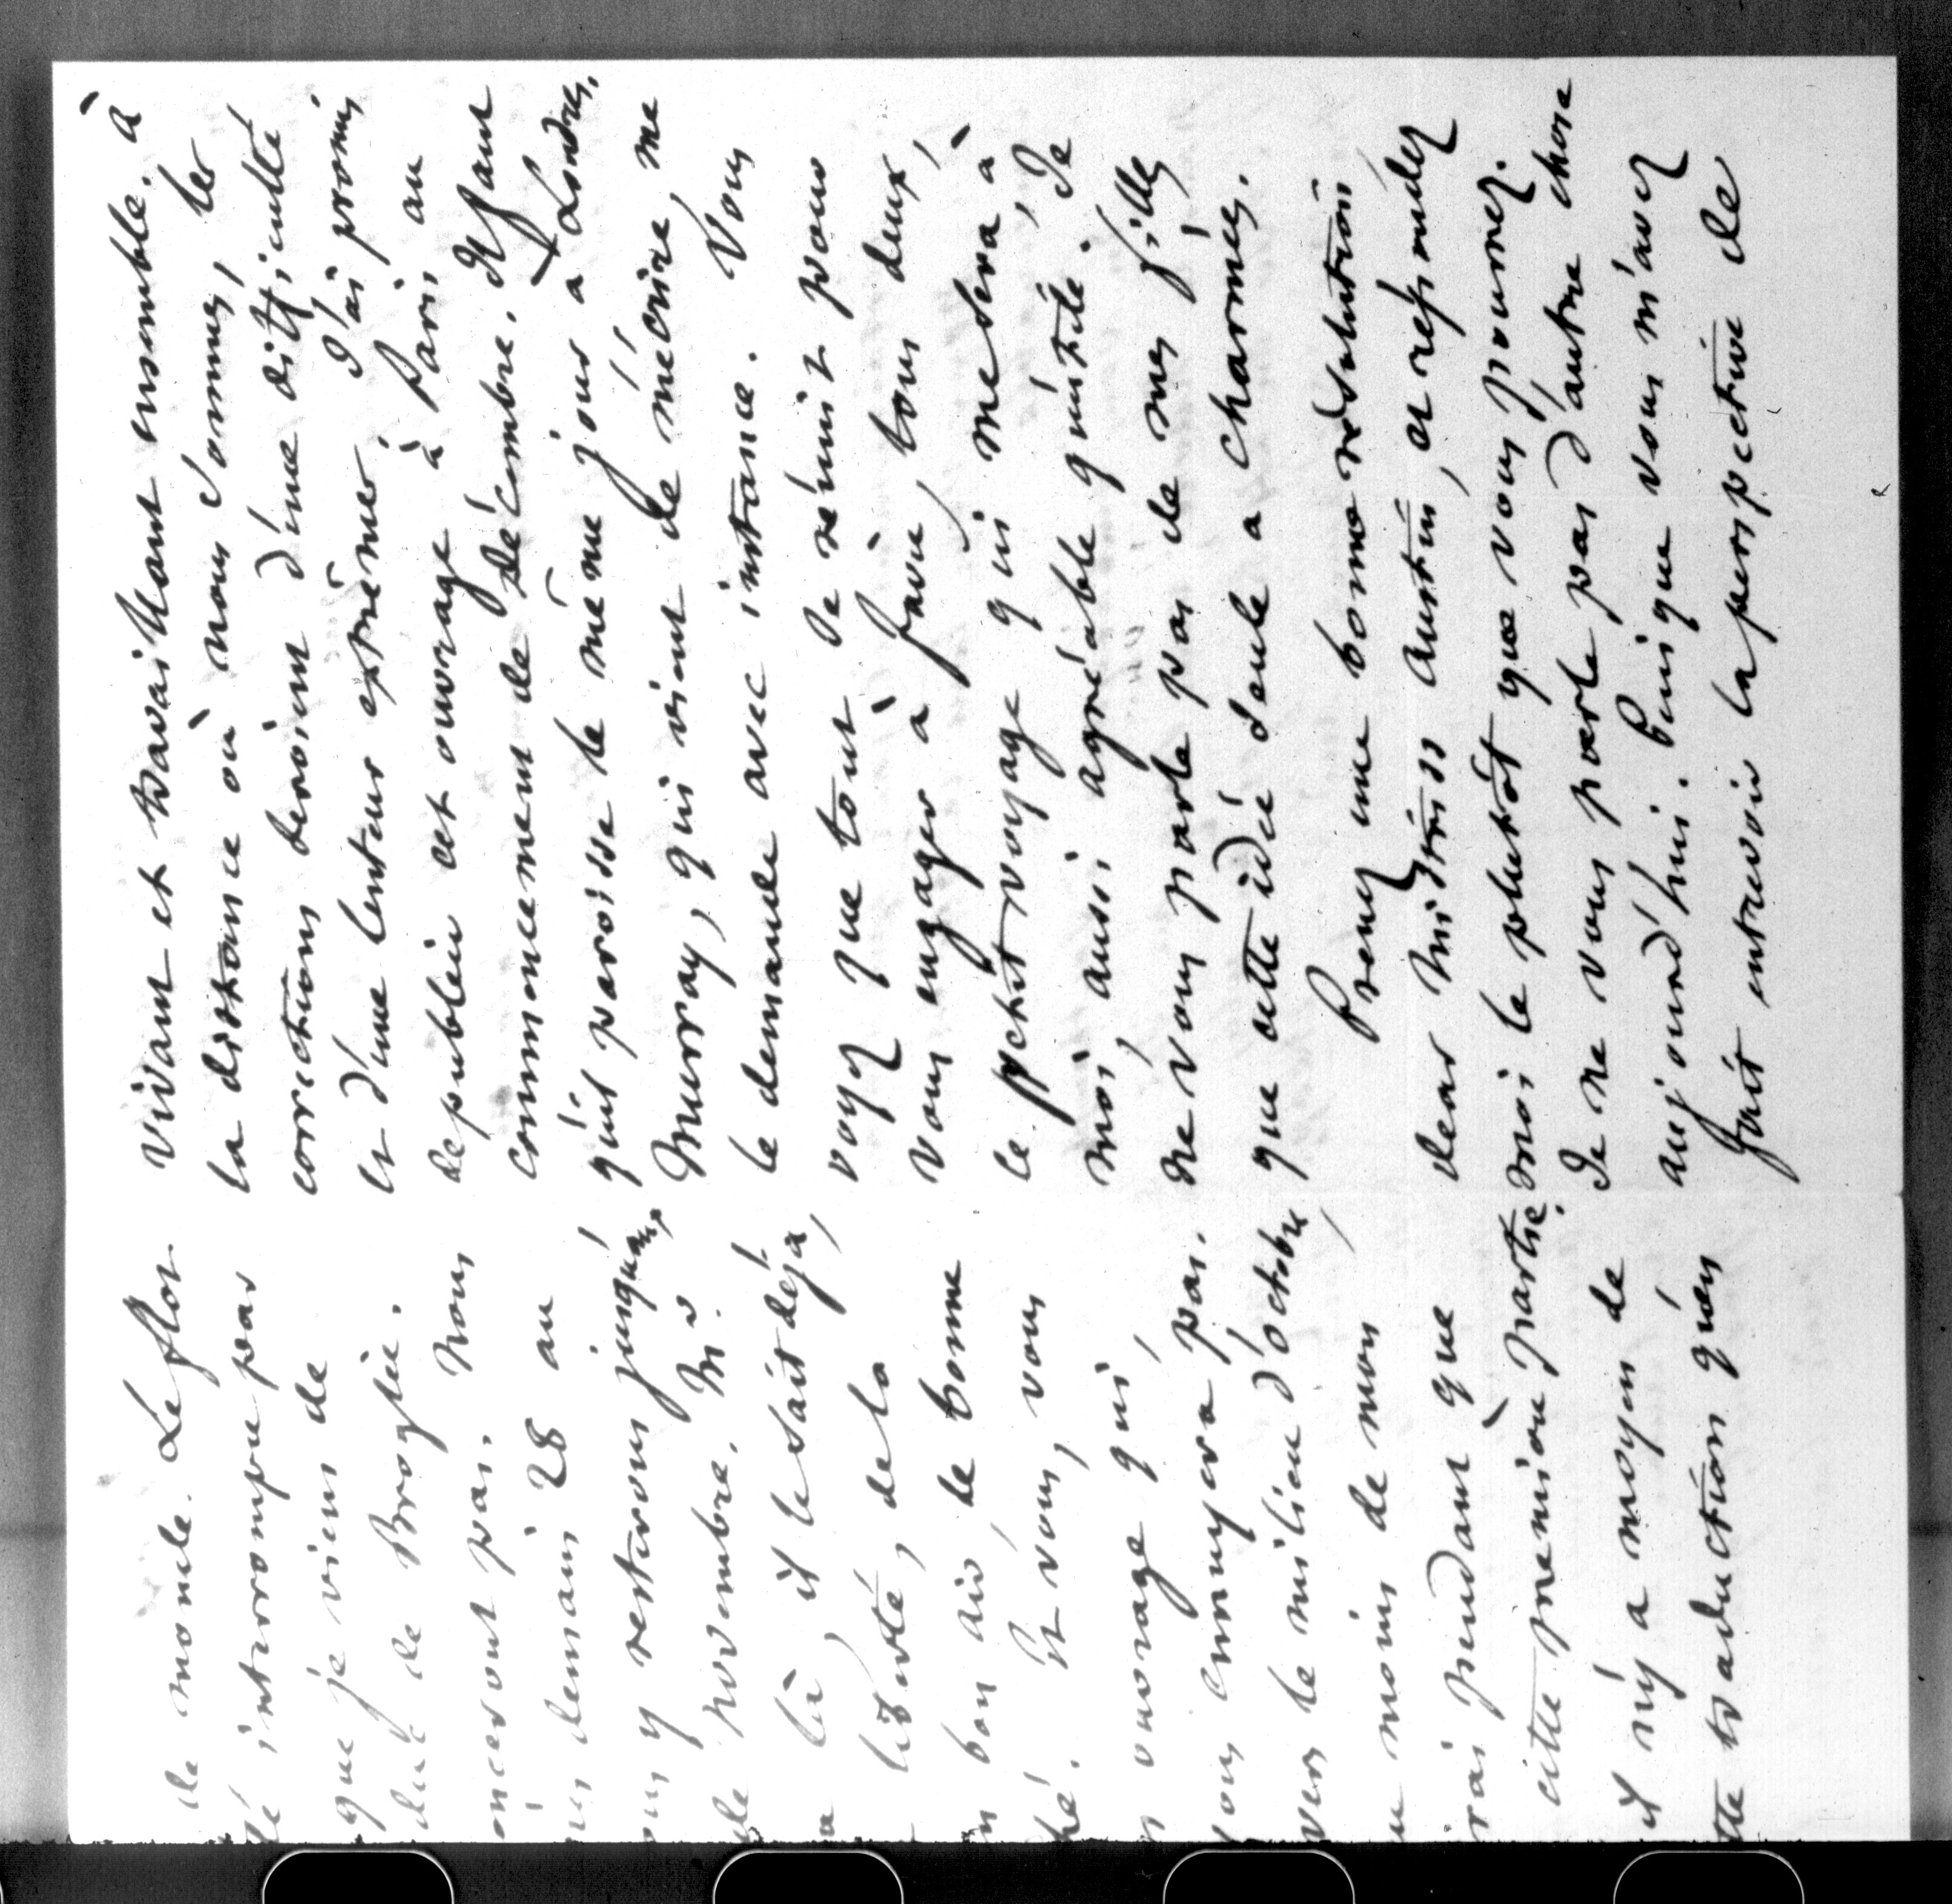 de monde. Le flot
interrompu par
que je viens de
duc de Broglie.
pas. Nous
demain 28 au
y resterons jusqu'au
de novembre. Mr.
là, il le sait déjà,
liberté, de la
bon air, de bonne
Et vous, vous
ouvrage qui,
ennuyera pas.
vers le milieu d'octobre,
moins de mon
pendant que
cette première partie.
il n'y a moyen de
traduction qu'en
vivant et travaillant ensemble. à
la distance où nous sommes, les
corrections seroient d'une difficulté
et d'une lenteur extrêmes. J'ai promis
de publier cet ouvrage à Paris au
commencement de Décembre. Il faut
qu'il paroisse le même jour à Londres.
Murray, qui vient de m'écrire, me
le demande avec instance. Vous
voyez que tout se réunit pour
vous engager à faire, tous deux,
le petit voyage qui me sera à
moi, aussi agréable qu'utile. Je
ne vous parle pas de mes filles,
que cette idée seule a charmées.
Prenez une bonne résolution
dear Mistriss Austin, et répondez
moi le plutôt que vous pourrez.
Je ne vous parle pas d'autre chose
aujourd'hui. Puisque vous m'avez
fait entrevoir la perspective de